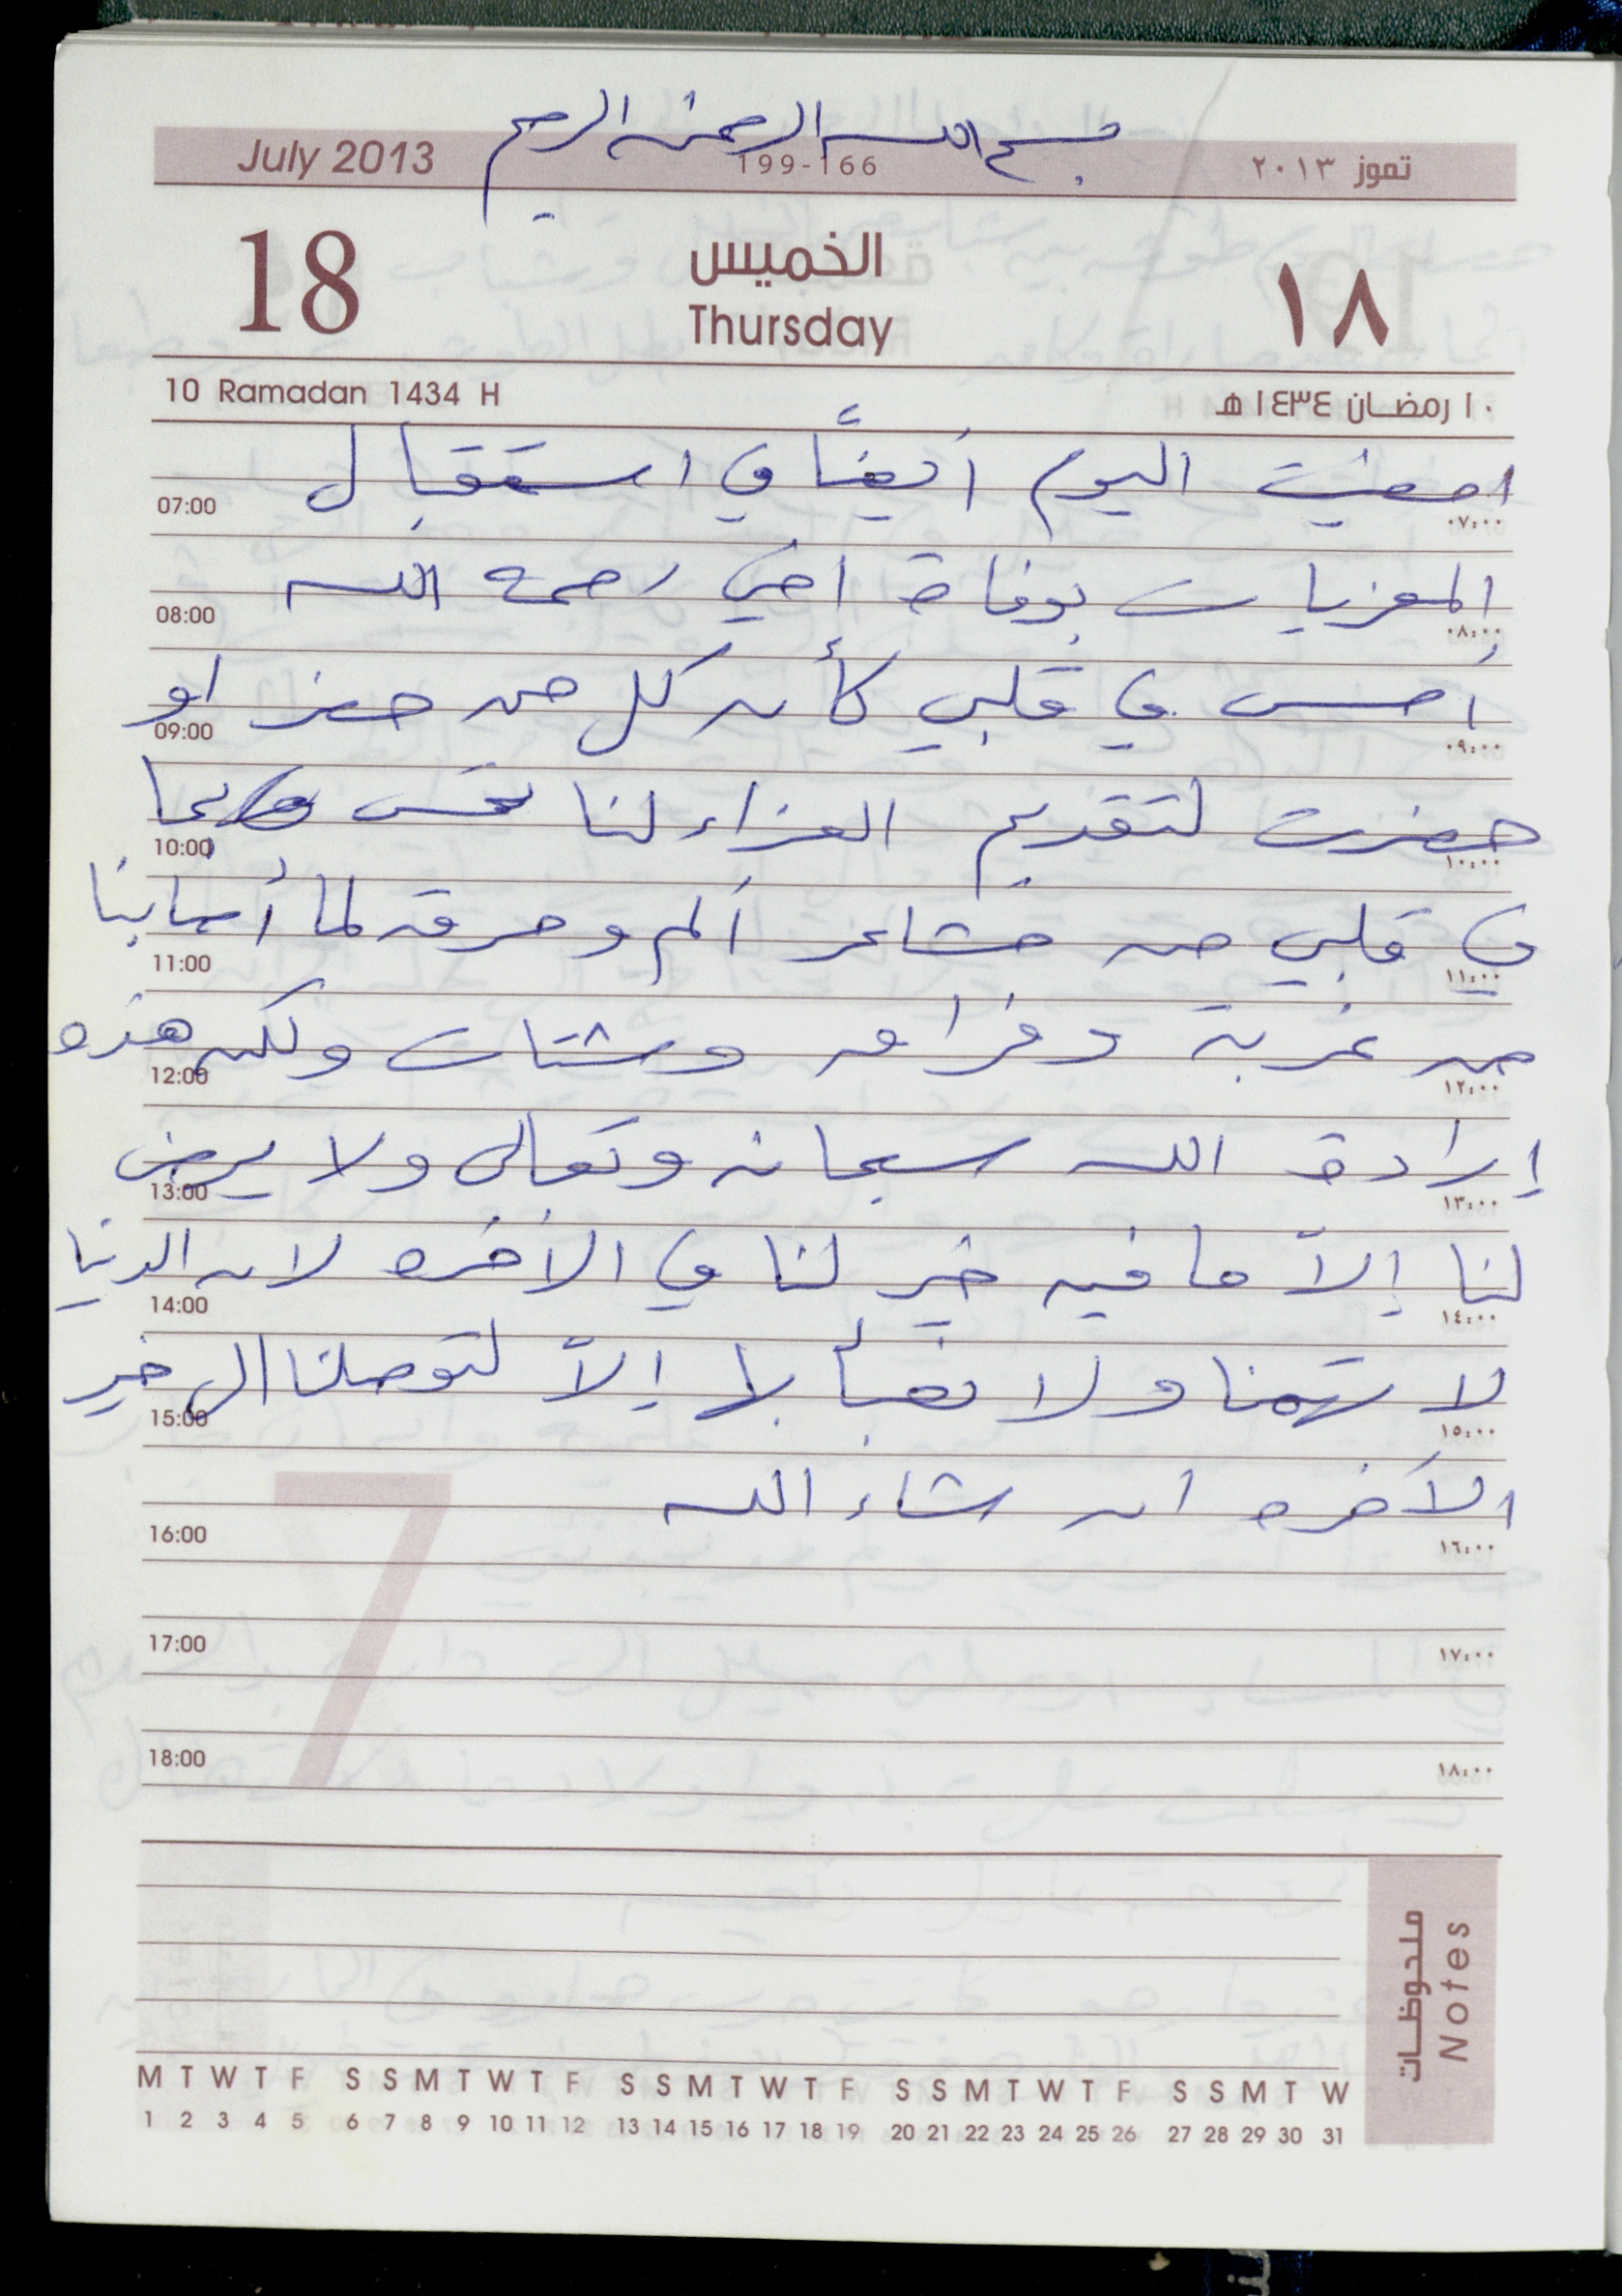 بسم الله الرحمن الرحيم
July 2013 199-166 تموز ٢٠١٣
18 الخميس ١٨
Thursday
10 Ramadan 1434 H ١٠ رمضان ١٤٣٤ هـ
امضيت اليوم أيضاً في استقبال
07:00 ٠٧:٠٠
المعزيات بوفاة اخي رحمه الله
08:00 ٠٨:٠٠
أحس في قلبي كأن كل من حضر او
09:00 ٠٩:٠٠
حضرت لتقديم العزاء لنا تحس بما
10:00 ١٠:٠٠
في قلبي من مشاعر ألم وحرقه لما أصابنا
11:00 ١١:٠٠
من غربة وفراق وشتات ولكن هذه
12:00 ١٢:٠٠
إرادة الله سبحانه وتعالى ولا يرضى
13:00 ١٣:٠٠
لنا إلاّ ما فيه خير لنا في الآخره لان الدنيا
14:00 ١٤:٠٠
لا تهمنا ولا نعبأ بها إلاّ لتوصلنا الى خير
15:00 ١٥:٠٠
الآخره ان شاء الله
16:00 ١٦:٠٠
17:00 ١٧:٠٠
18:00 ١٨:٠٠
7
ملحوظات
Notes
M T W T F S S M T W T F S S M T W T F S S M T W T F S S M T W
1 2 3 4 5 6 7 8 9 10 11 12 13 14 15 16 17 18 19 20 21 22 23 24 25 26 27 28 29 30 31